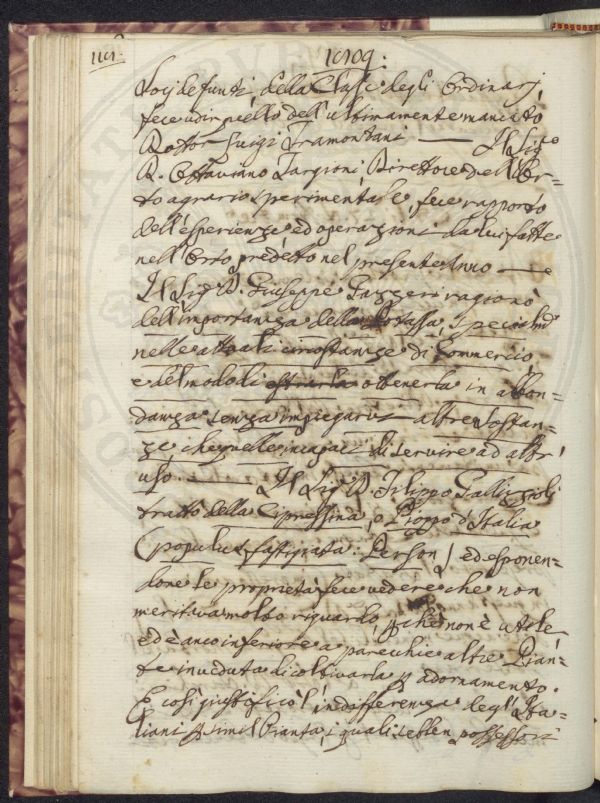 1809.
Socj defunti della Classe degli Ordinarj,
fece udir quello dell'ultimamente mancato
Dottor Luigi Tramontani — Il Sig.
D. Ottaviano Targioni Direttore dell'Or-
to agrario sperimentale fece rapporto
dell'esperienze ed operazioni da lui fatte
nell'Orto predetto nel presente Anno —
Il Sig. D. Giuseppe Gazzeri ragionò
dell'importanza della Potassa, specialm.
nelle attuali circostanze di Commercio,
e del modo di estrarla ottenerla in abbon-
danza senza impiegarvi altre sostan-
ze, che quelle incapaci di servire ad altr'
uso. — Il Sig. D. Filippo Gallizioli
trattò della Cipressina, o Pioppo d'Italia
(populus fastigiata: Person) ed esponen-
done le proprietà fece vedere che non
meritava molto riguardo, pchè non è utile,
ed è anco inferiore a parecchie altre Pian-
te in veduta di coltivarla p adornamento.
E così giustificò l'indifferenza degl'Ita-
liani p simil Pianta, i quali sebben possessori